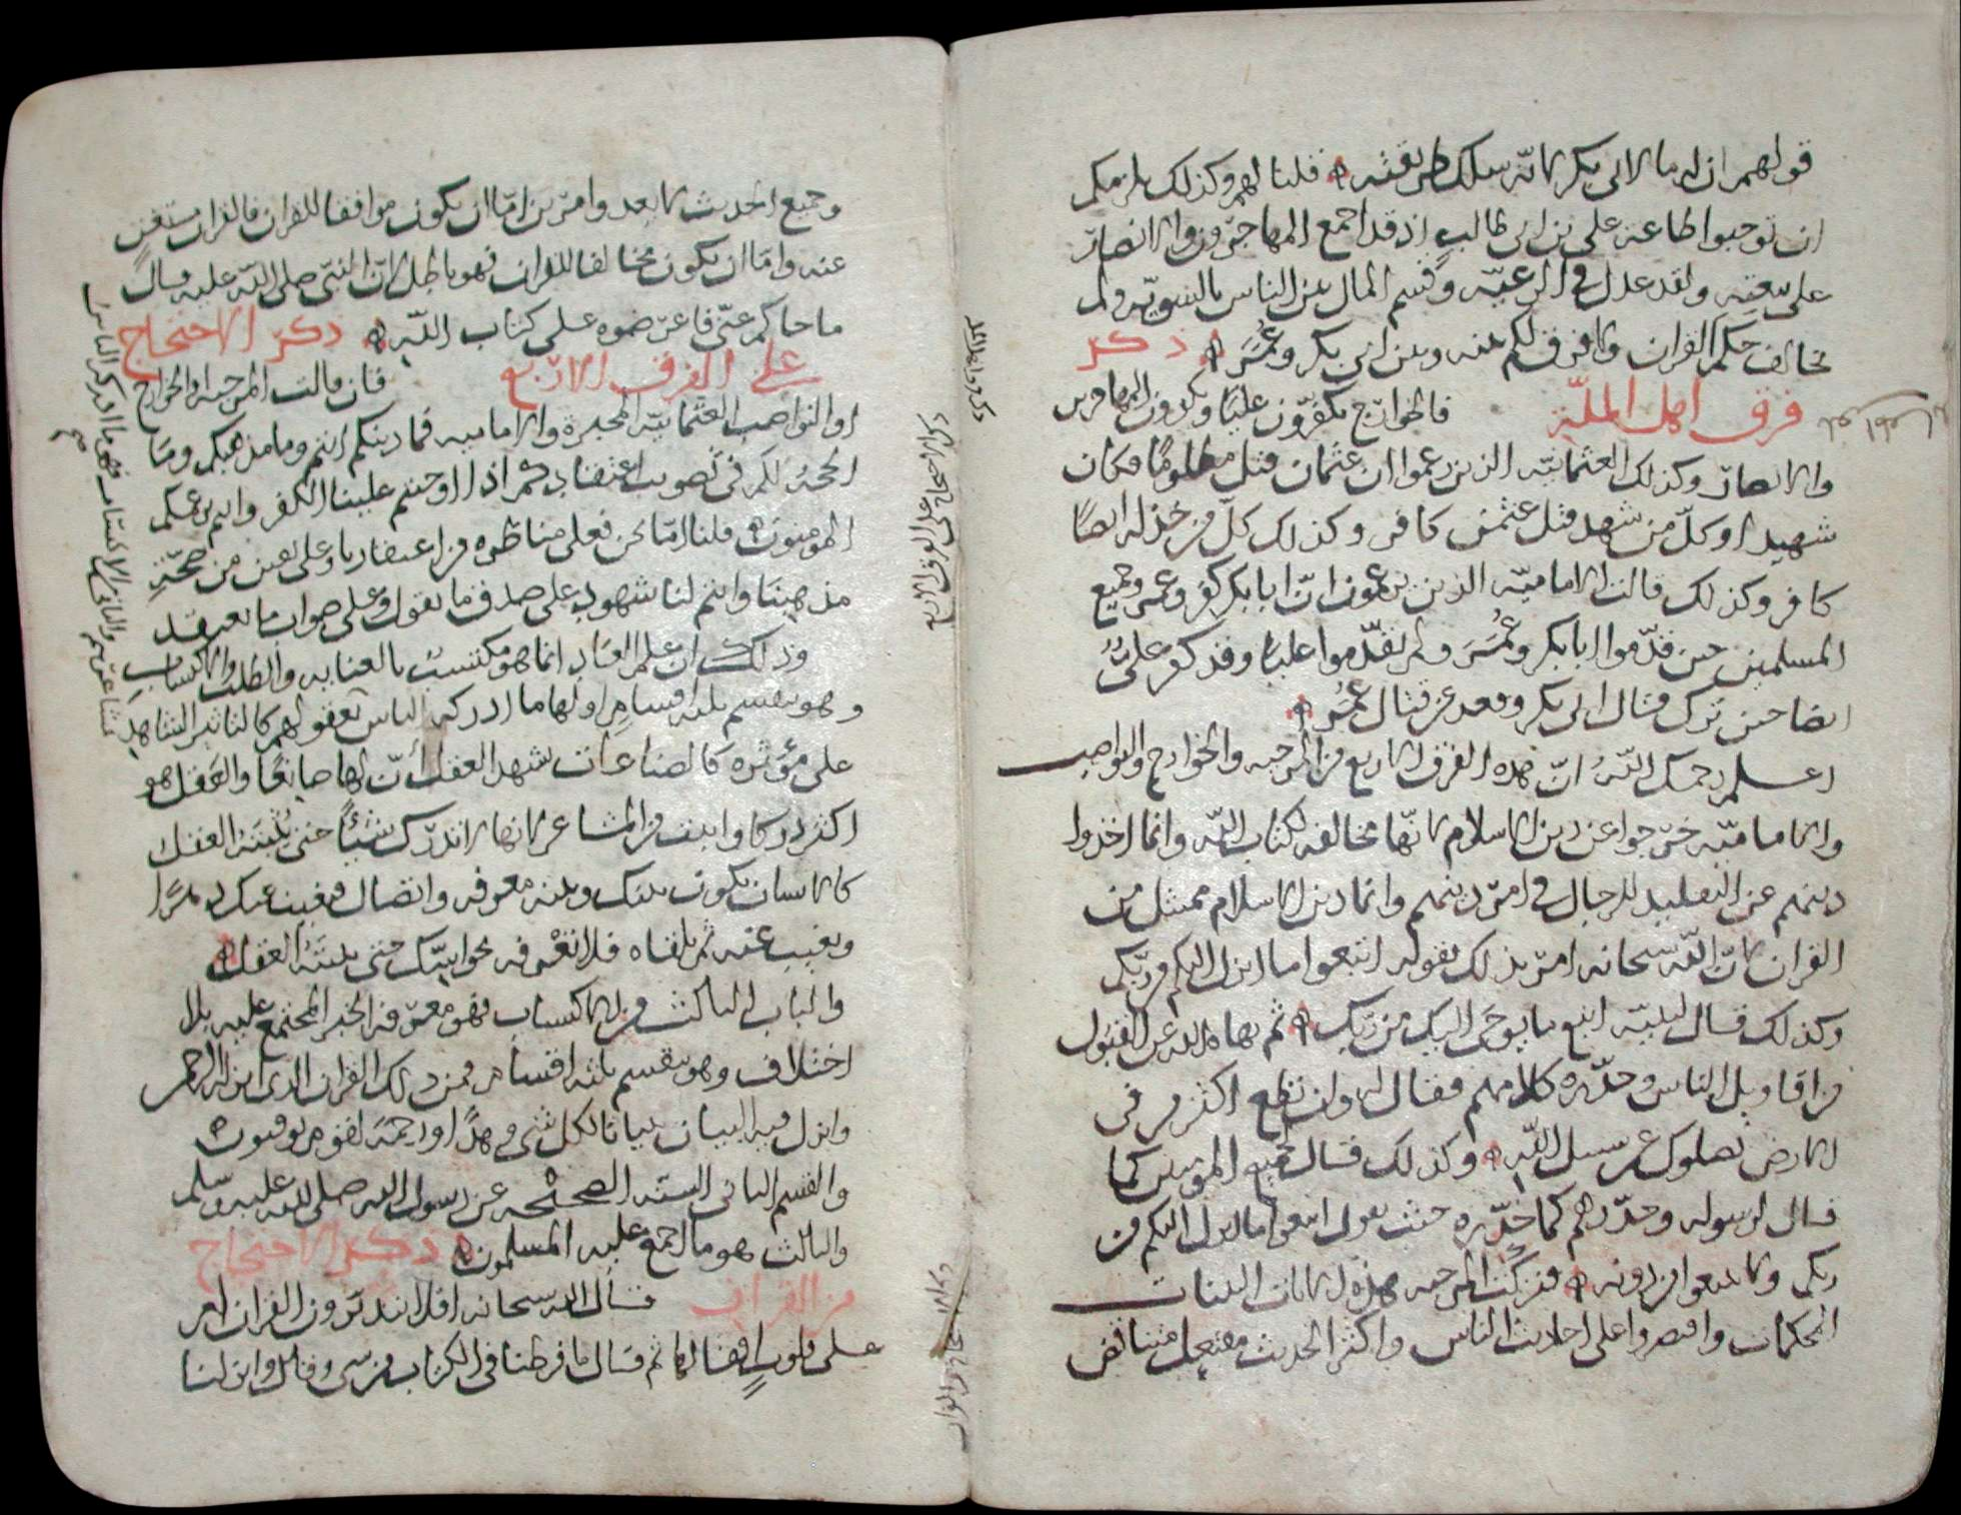 قولهم ان لزمنا لابي بكر لانه سلك طريقته قلنا لهم وكذلك يلزمكم
ان توجبوا طاعة علي بن ابي طالب اذ قد اجمع المهاجرون والانصار
على بيعته ولقد عدل في الرعية وقسم المال بين الناس بالسوية ولم
يخالف حكم القران ولا فرق لكم بينه وبين ابي بكر وعمر ذكر
فرق اهل الملة فالخوارج يكفرون عليا ويكفرون المهاجرين
والانصار وكذلك العثمانية الذين زعموا ان عثمان قتل مظلوما فكان
شهيدا وكل من شهد قتل عثمن كافر وكذلك كل من خذله ايضا
كافر وكذلك قالت الامامية الذين يزعمون ان ابا بكر كفر وعمر وجميع
المسلمين حين قدموا ابا بكر وعمر ولم يقدموا عليا وقد كفر علي
ايضا حين ترك قتال ابي بكر وقعد عن قتال عمر
اعلم رحمك الله ان هذه الفرق الاربع من المرجية والخوارج والنواصب
والامامية خرجوا عن دين الاسلام لانها مخالفة لكتاب الله وانما اخذوا
دينهم عن التقليد للرجال في امر دينهم وانما دين الاسلام ممتثل من
القران لان الله سبحانه امر بذلك بقوله اتبعوا ما انزل اليكم من ربكم
وكذلك قال لنبيه اتبع ما يوحى اليك من ربك ثم نهاه الله عن القبول
من اقاويل الناس وحذره كلامهم فقال له وان تطع اكثر من في
الارض يضلوك عن سبيل الله وكذلك قال لجميع المؤمنين كما
قال لرسوله وحذرهم كما حذره حيث يقول اتبعوا ما انزل اليكم من
ربكم ولا تتبعوا من دونه فتركت المرجية هذه الايات البينات
المحكمات واقتصروا على احاديث الناس واكثر الحديث مفتعل متناقض
وجميع الحديث لا يعدوا امرين اما ان يكون موافقا للقران فالقران مستغن
عنه واما ان يكون مخالفا للقران فهو باطل لان النبي صلى الله عليه قال
ما جاكم عني فاعرضوه على كتاب الله ذكر الاحتجاج
على الفرق الاربع فان قالت المرجية او الخوارج
او النواصب العثمانية المجبرة والامامية فما دينكم انتم وما مذهبكم وما
الحجة لكم في تصويب اعتقادكم اذا اوجبتم علينا الكفر وانتم بزعمكم
المومنون قلنا اما نحن فعلى مناظره من اعتقادنا وعلى يقين من صحة
مذهبنا وانتم لنا شهود على صدق ما نقول وعلى صواب ما نعتقد
وذلك ان علم العباد انما هو مكتسب بالعناية والطلب والاكتساب
وهو ينقسم ثلثة اقسام اولها ما ادركه الناس بعقولهم كالتاثير الشاهد
على مؤثره كالصناعات يشهد العقل ان لها صانعا والعقل هو
اكثر دركا واثبت من المشاعر لانها لا تدرك شيئا حتى يثبته العقل
كالانسان يكون بينك وبينه معرفة واتصال فيغيب عنك دهرا
ويغيب عنه ثم تلقاه فلا تعرفه بحواسك حتى يثبته العقل
والباب الثالث من الاكتساب فهو معرفة الخبر المجتمع عليه بلا
اختلاف وهو ينقسم ثلثة اقسام فمن ذلك القران الذي انزله الرحمن
وانزل فيه البيان تبيانا لكل شي وهدا ورحمة لقوم يوقنون
والقسم الثاني السنة الصحيحة عن رسول الله صلى الله عليه وسلم
والثالث هو ما اجمع عليه المسلمون ذكر الاحتجاج
من القران قال الله سبحانه افلا يتدبرون القران ام
على قلوب اقفالها ثم قال ما فرطنا في الكتاب من شي وقال وانزلنا
ذكر الاحتجاج على الفرق الاربع